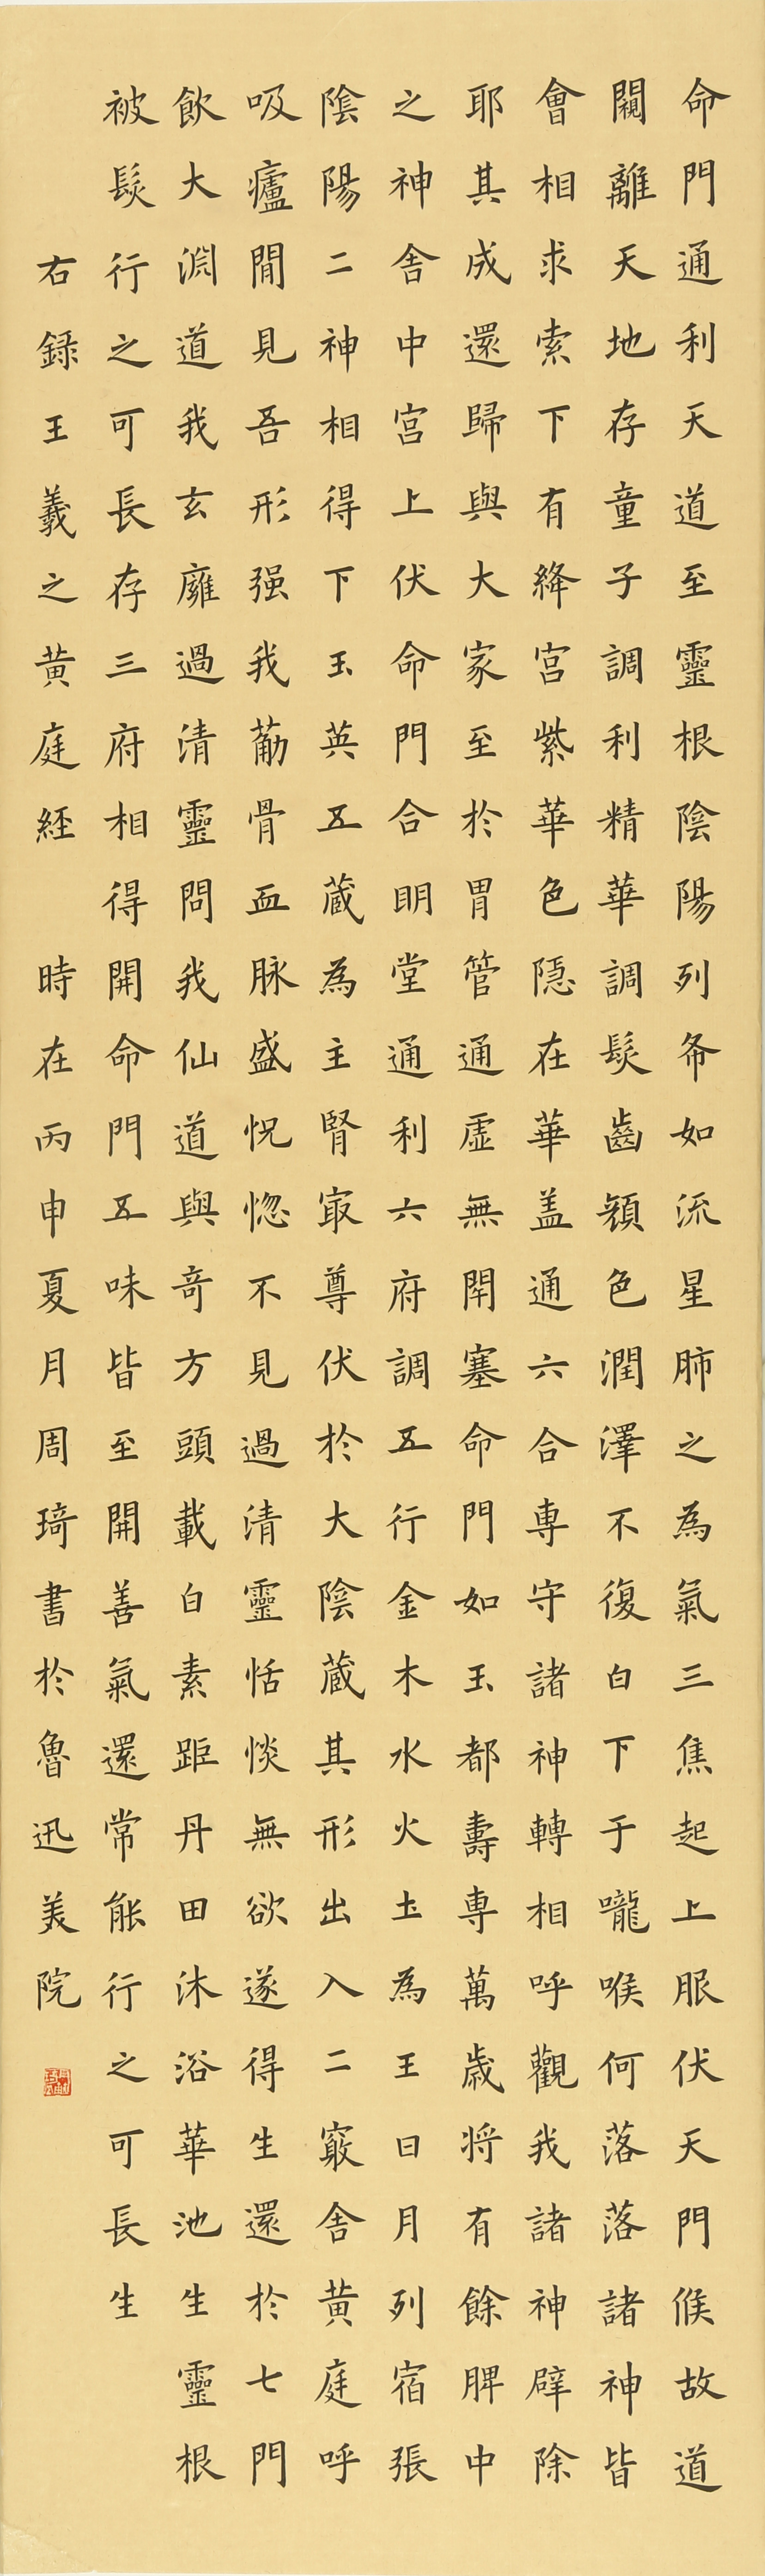 命門通利天道至靈根陰陽列布如流星肺之為氣三焦起上服伏天門候故道
闚離天地存童子調利精華調髮齒顏色潤澤不復白下于嚨喉何落落諸神皆
會相求索下有絳宮紫華色隱在華盖通六合専守諸神轉相呼觀我諸神辟除
耶其成還歸與大家至於胃管通虛無閇塞命門如玉都壽専萬歲将有餘脾中
之神舍中宮上伏命門合明堂通利六府調五行金木水火土為王日月列宿張
陰陽二神相得下玉英五蔵為主腎冣尊伏於大陰蔵其形出入二竅舍黄庭呼
吸廬間見吾形强我筋骨血脉盛怳惚不見過清靈恬惔無欲遂得生還於七門
飲大淵道我玄廱過清靈問我仙道與竒方頭載白素距丹田沐浴華池生靈根
被髮行之可長存三府相得開命門五味皆至開善氣還常能行之可長生
右録王羲之黄庭經 時在丙申夏月周琦書於魯迅美院